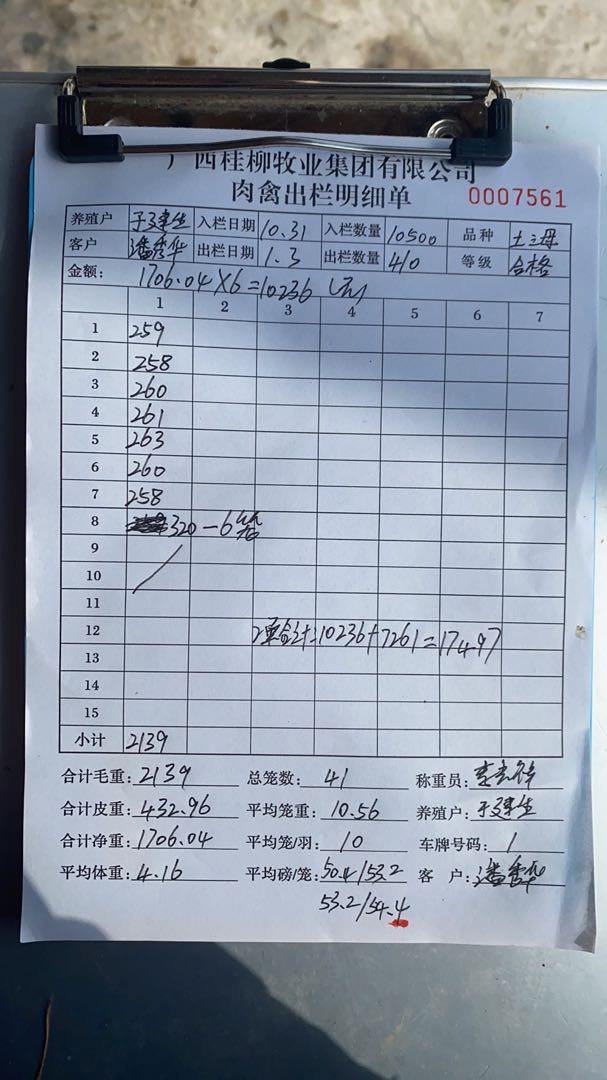 广西桂柳牧业集团有限公司
肉禽出栏明细单 0007561
养殖户 入栏日期 10.31 入栏数量 10500 品种 土三母
客户 潘秀华 出栏日期 1.3 出栏数量 410 等级 合格
金额: 1706.04×6=10236
1 2 3 4 5 6 7
1 259
2 258
3 260
4 261
5 263
6 260
7 258
8 320-6笼
9
10
11
12 2单合计:10236+7261=17497
13
14
15
小计 2139
合计毛重: 2139 总笼数: 41 称重员:
合计皮重: 432.96 平均笼重: 10.56 养殖户:
合计净重: 1706.04 平均笼/羽: 10 车牌号码: 1
平均体重: 4.16 平均磅/笼: 50.4/53.2 客 户: 潘秀华
53.2/54.4